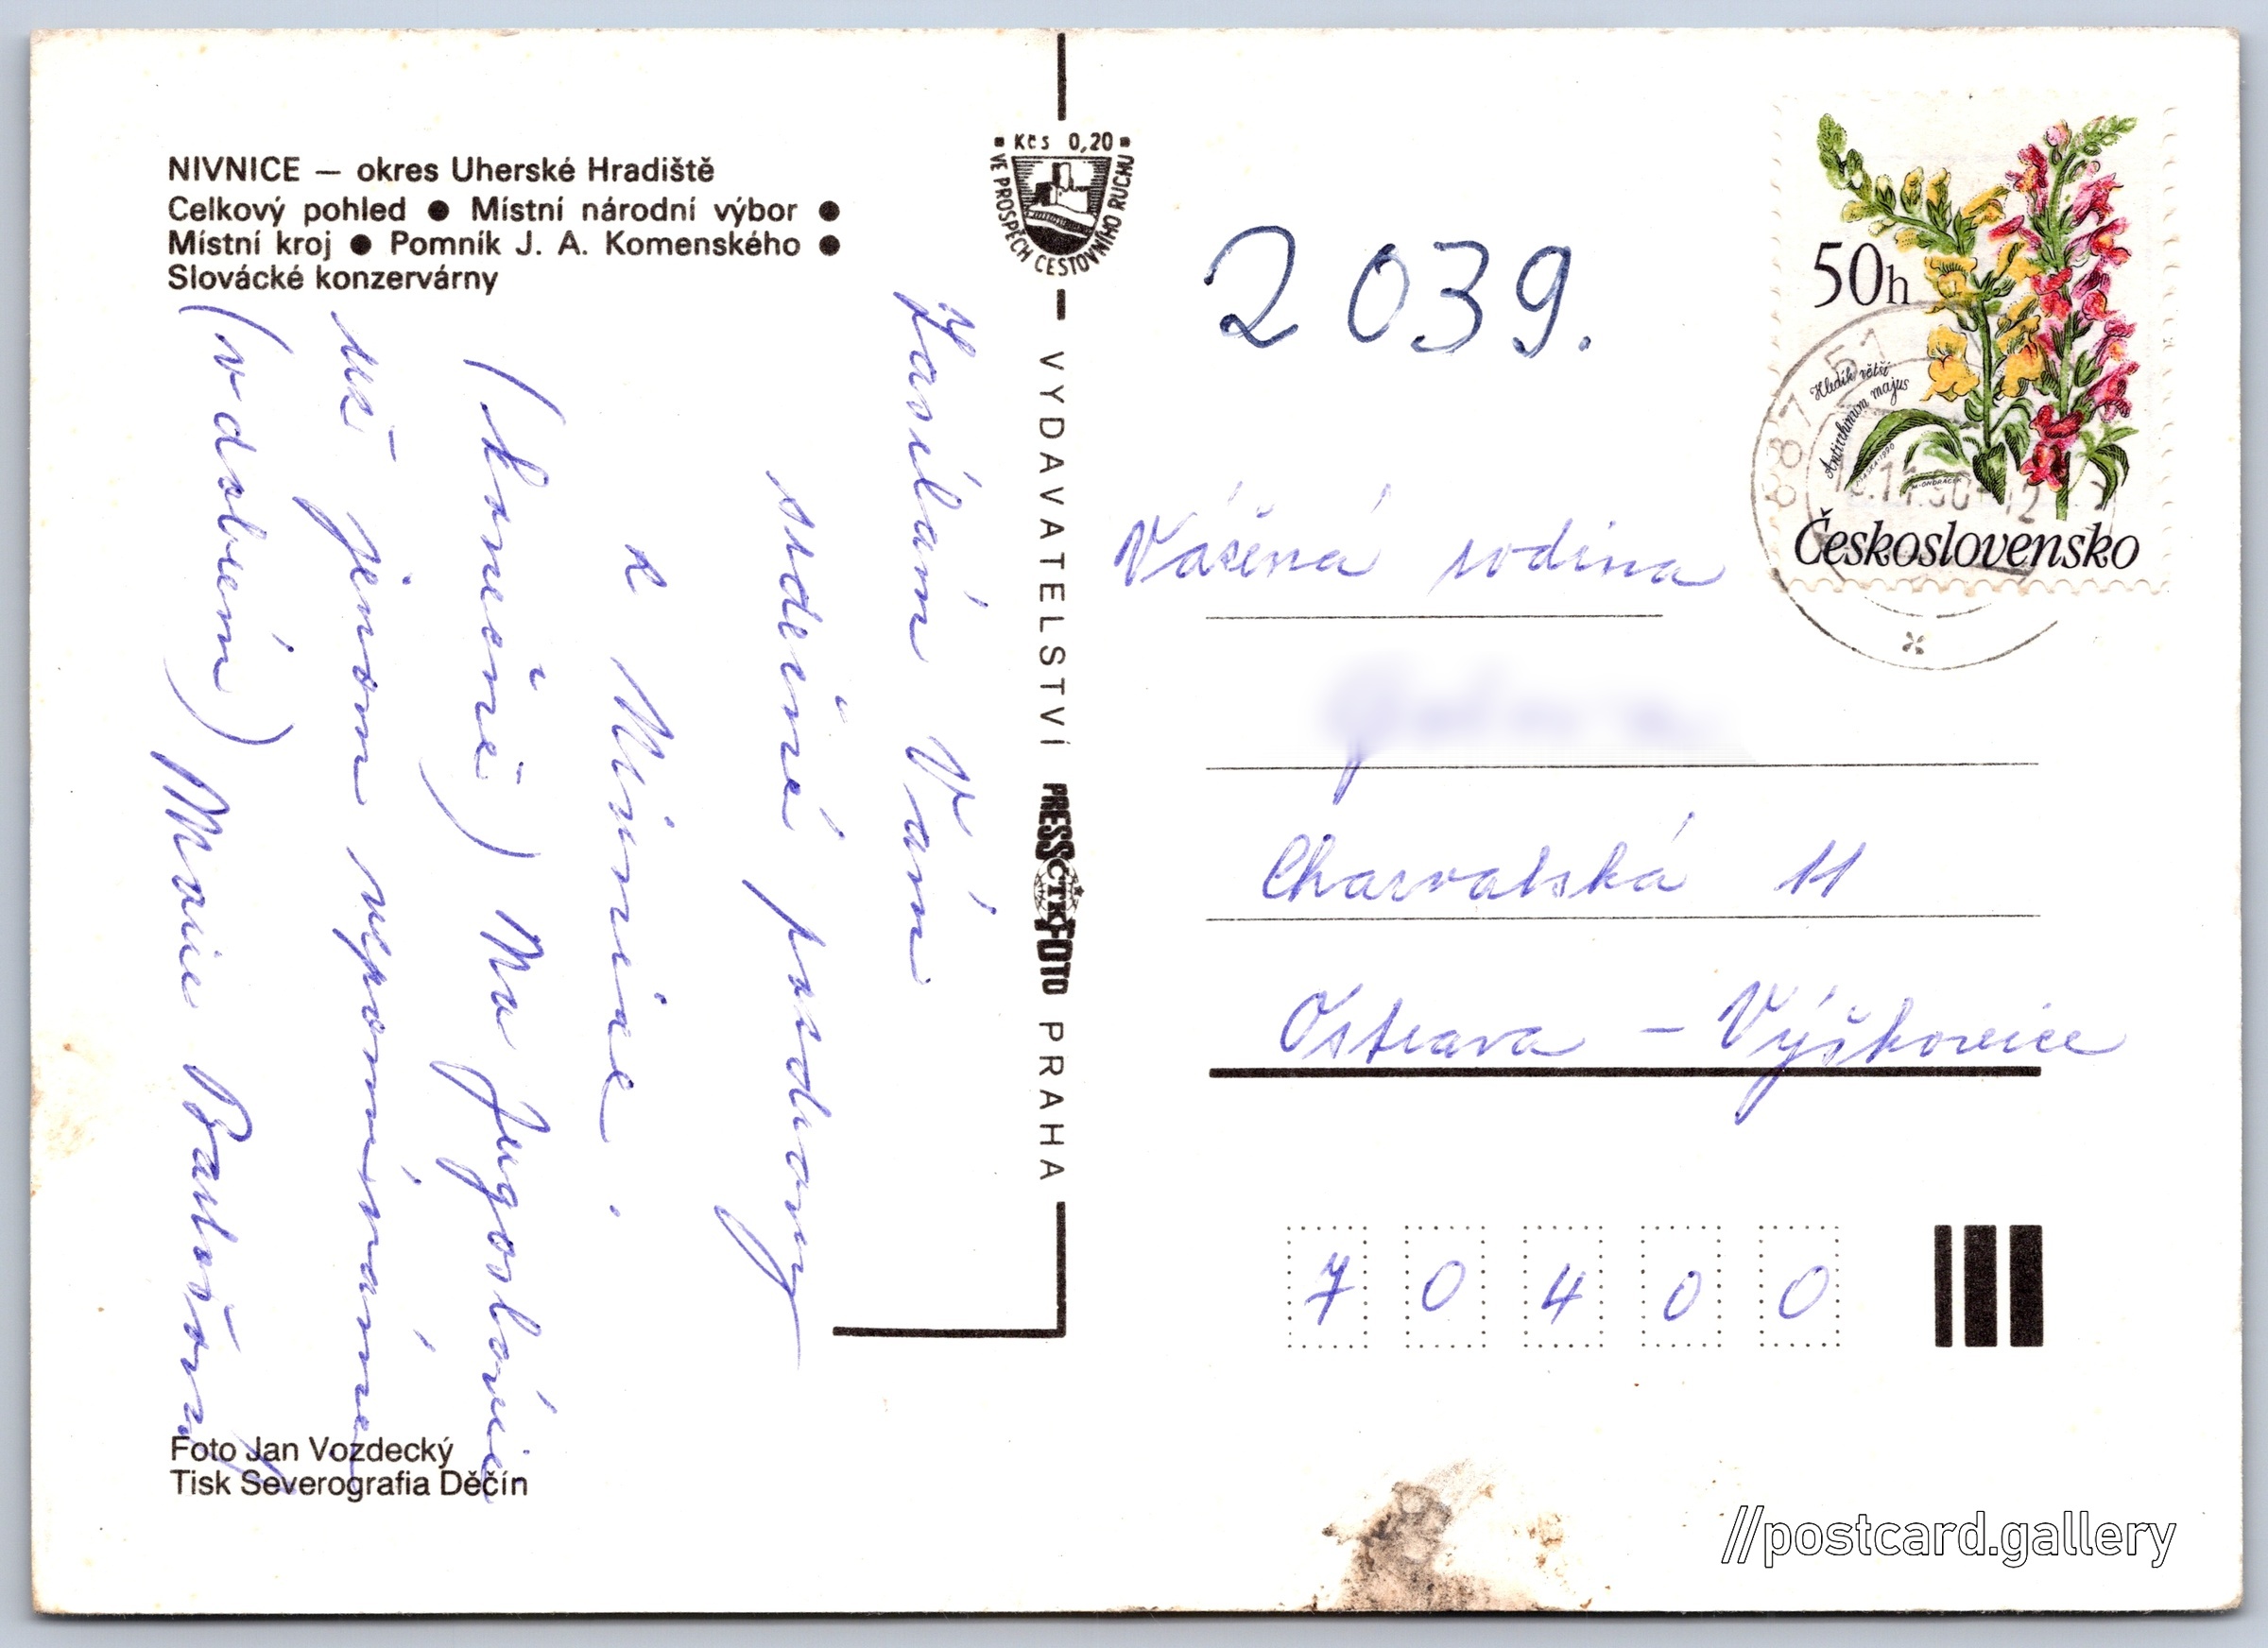 NIVNICE — okres Uherské Hradiště
Celkový pohled ● Místní národní výbor ●
Místní kroj ● Pomník J. A. Komenského ●
Slovácké konzervárny
Zasílám Vám
srdečné pozdravy
z Nivnice.
(Luneče) Na Jugoslávii
už jenom vzpomínáme
(v dobrém) Marie
Foto Jan Vozdecký
Tisk Severografia Děčín
▪ Kčs 0,20 ▪
VE PROSPĚCH CESTOVNÍHO RUCHU
VYDAVATELSTVÍ PRESSFOTO PRAHA
ČTK
2 039.
50h
Hledík větší
Antirrhinum majus
Československo
687 51
Vážená rodina
Charvatská 11
Ostrava - Výškovice
7 0 4 0 0
//postcard.gallery